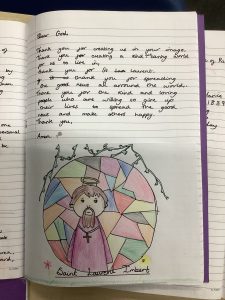 Dear God,
Thank you for creating us in your image.
Thank you for creating a kind loving world
for us to live in,
thank you for St Laurent.
thank you for spreading
the good news all around the world.
Thank you for the kind and loving
people who are willing to give up
their lives to spread the good
news and make others happy.
Thank you,
Amen.
Saint Laurent Imbert